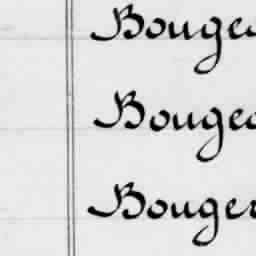 Bougea
Bougea
Bouger